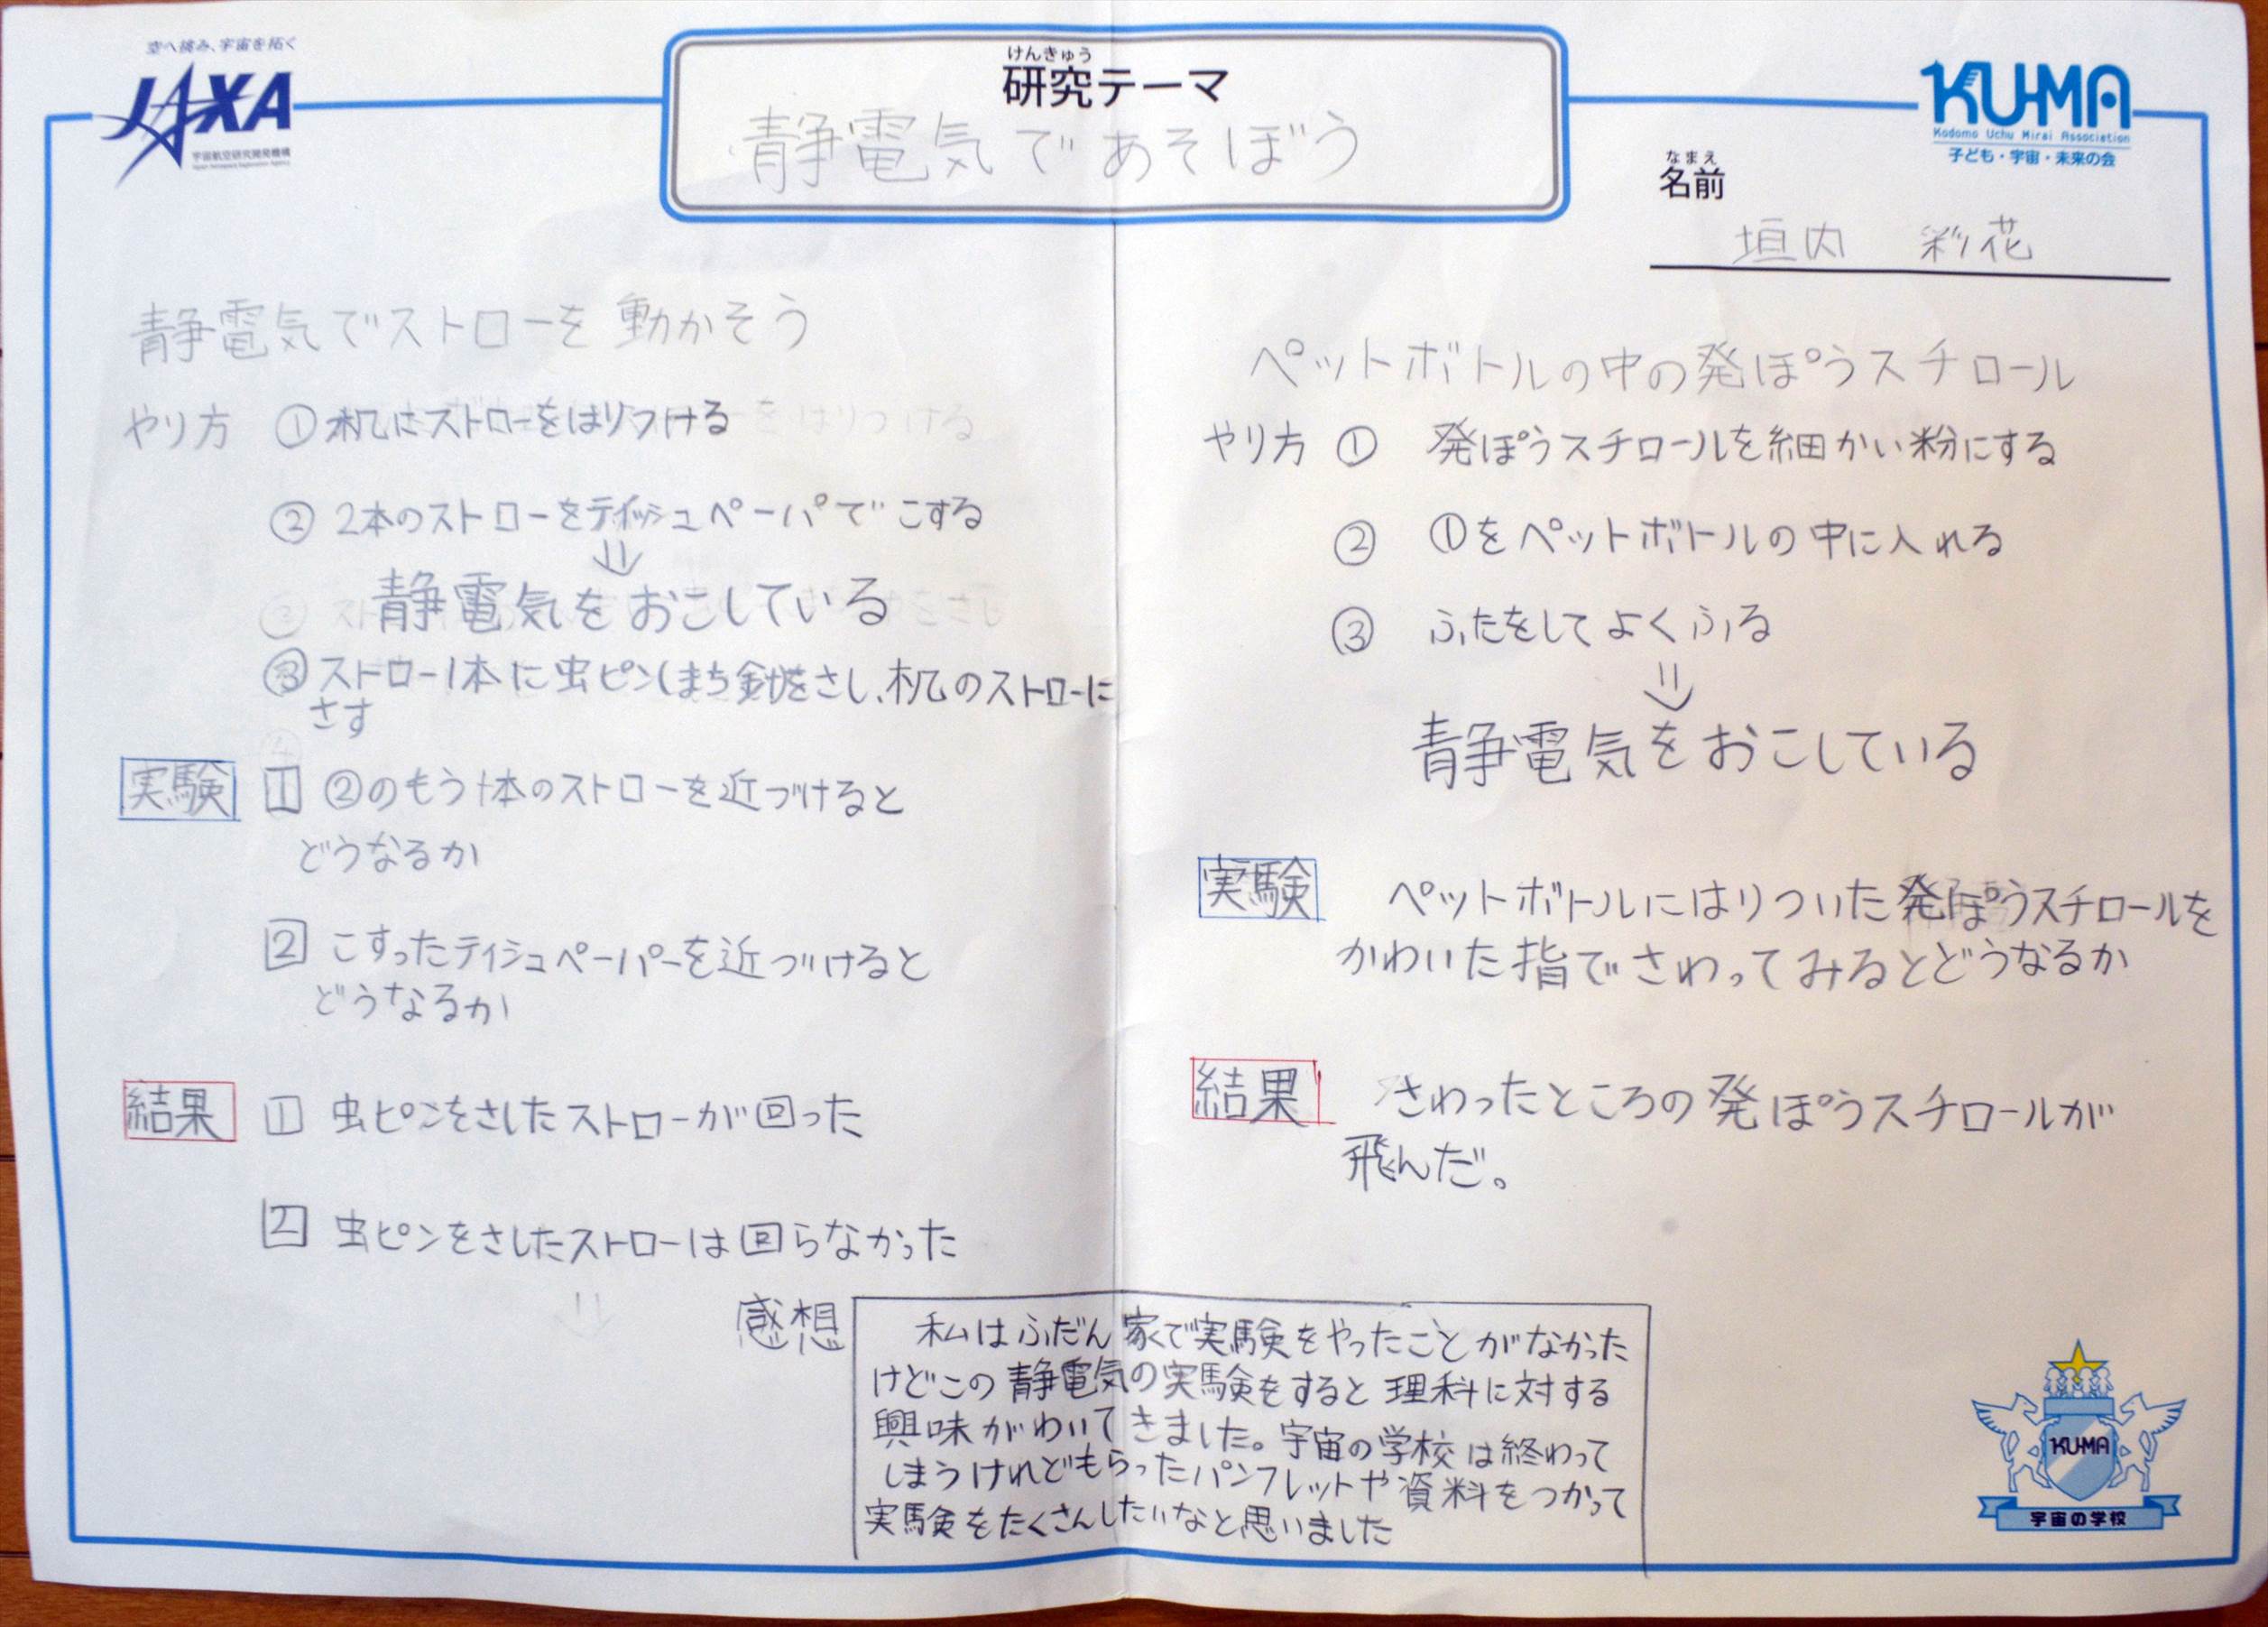 空へ挑み、宇宙を拓く
JAXA
宇宙航空研究開発機構
Japan Aerospace Exploration Agency
けんきゅう
研究テーマ
静電気であそぼう
KUMA
Kodomo Uchu Mirai Association
子ども・宇宙・未来の会
なまえ
名前
垣内 彩花
静電気でストローを動かそう
やり方 ① 机にストローをはりつける
② 2本のストローをティッシュペーパで こする
⇓
静電気をおこしている
③ ストロー1本に虫ピン(まち針)をさし、机のストローに
さす
実験 1 ②のもう1本のストローを近づけると
どうなるか
2 こすったティシュペーパーを近づけると
どうなるか
結果 1 虫ピンをさしたストローが回った
2 虫ピンをさしたストローは回らなかった
⇓
ペットボトルの中の発ぽうスチロール
やり方 ① 発ぽうスチロールを細かい粉にする
② ①をペットボトルの中に入れる
③ ふたをしてよくふる
⇓
静電気をおこしている
実験 ペットボトルにはりついた発ぽうスチロールを
かわいた指でさわってみるとどうなるか
結果 さわったところの発ぽうスチロールが
飛んだ。
感想 私はふだん家で実験をやったことがなかった
けどこの静電気の実験をすると理科に対する
興味がわいてきました。宇宙の学校は終わって
しまうけれどもらったパンフレットや資料をつかって
実験をたくさんしたいなと思いました
KUMA
宇宙の学校